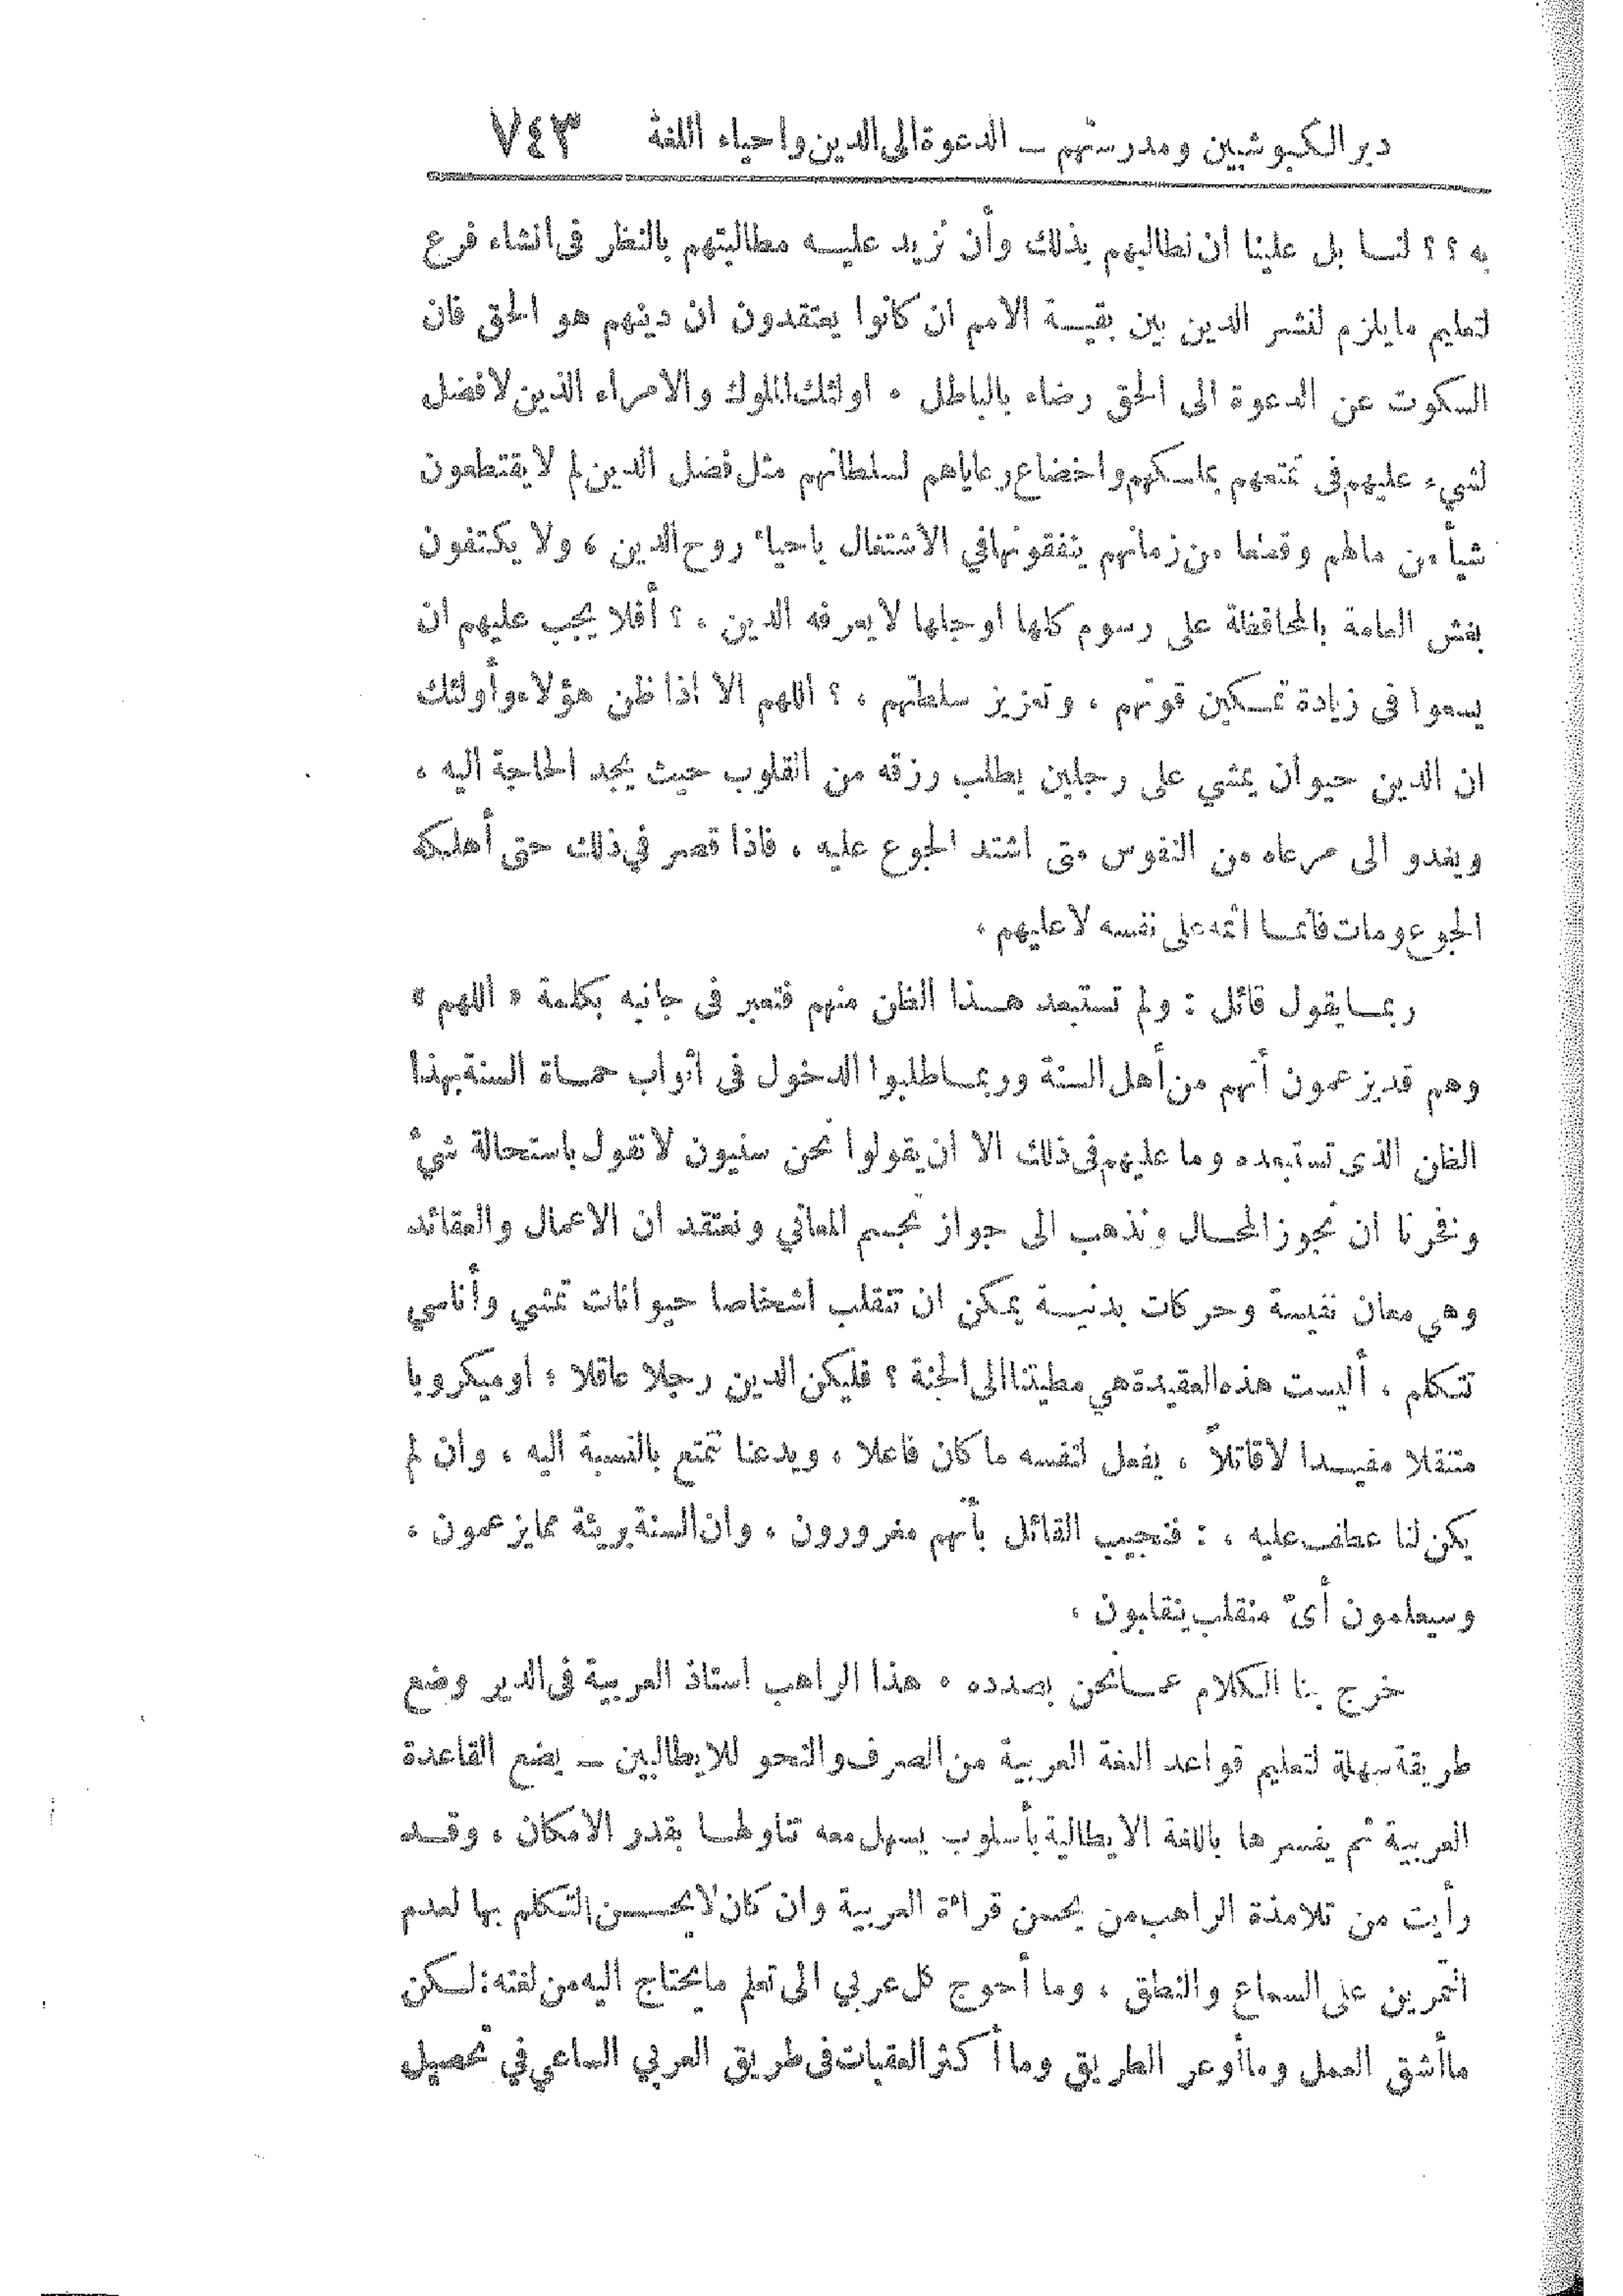 دير الكبوشيين ومدرستهم ــ الدعوة الى الدين واحياء اللغة ٧٤٣
به ؟ ؟ لنا بل علينا ان نطالبهم بذلك وأن نزيد عليه مطالبتهم بالنظر في انشاء فرع
لتعليم ما يلزم لنشر الدين بين بقية الامم ان كانوا يعتقدون ان دينهم هو الحق فان
السكوت عن الدعوة الى الحق رضاء بالباطل . اولئك الملوك والامراء الذين لا فضل
لشيء عليهم في تمتعهم بملكهم واخضاع رعاياهم لسلطانهم مثل فضل الدين لم لا يقتطعون
شيأ من مالهم وقطعا من زمانهم ينفقونها في الاشتغال باحياء روح الدين ، ولا يكتفون
بغش العامة بالمحافظة على رسوم كلها او جلها لا يعرفه الدين ، ؟ أفلا يجب عليهم ان
يسعوا في زيادة تمكين قوتهم ، وتعزيز سلطتهم ، ؟ اللهم الا اذا ظن هؤلاء وأولئك
ان الدين حيوان يمشي على رجلين يطلب رزقه من القلوب حيث يجد الحاجة اليه ،
ويغدو الى مرعاه من النفوس متى اشتد الجوع عليه ، فاذا قصر في ذلك حتى أهلكه
الجوع ومات فانما اثمه على نفسه لا عليهم ،
ربما يقول قائل : ولم تستبعد هذا الظن منهم فتعبر في جانبه بكلمة « اللهم »
وهم قد يزعمون أنهم من أهل السنة وربما طلبوا الدخول في اثواب حماة السنة بهذا
الظن الذي تستبعده وما عليهم في ذلك الا ان يقولوا نحن سنيون لا نقول باستحالة شيء
وفخرنا ان نجوز المحال ونذهب الى جواز تجسم المعاني ونعتقد ان الاعمال والعقائد
وهي معان نفسية وحركات بدنية يمكن ان تنقلب اشخاصا حيوانات تمشي وأناسي
تتكلم ، أليست هذه العقيدة هي مطيتنا الى الجنة ؟ فليكن الدين رجلا عاقلا ؛ او ميكروبا
متنقلا مفيدا لا قاتلاً ، يفعل لنفسه ما كان فاعلا ، ويدعنا نتمتع بالنسبة اليه ، وان لم
يكن لنا عطف عليه ، : فنجيب القائل بأنهم مغرورون ، وان السنة بريئة مما يزعمون ،
وسيعلمون أيّ منقلب ينقلبون ،
خرج بنا الكلام عما نحن بصدده . هذا الراهب استاذ العربية في الدير وضع
طريقة سهلة لتعليم قواعد اللغة العربية من الصرف والنحو للايطاليين ــ يضع القاعدة
العربية ثم يفسرها باللغة الايطالية بأسلوب يسهل معه تناولها بقدر الامكان ، وقد
رأيت من تلامذة الراهب من يحسن قراءة العربية وان كان لا يحسن التكلم بها لعدم
التمرين على السماع والنطق ، وما أحوج كل عربي الى تعلم ما يحتاج اليه من لغته : لكن
ما أشق العمل وما أوعر الطريق وما أكثر العقبات في طريق العربي الساعي في تحصيل